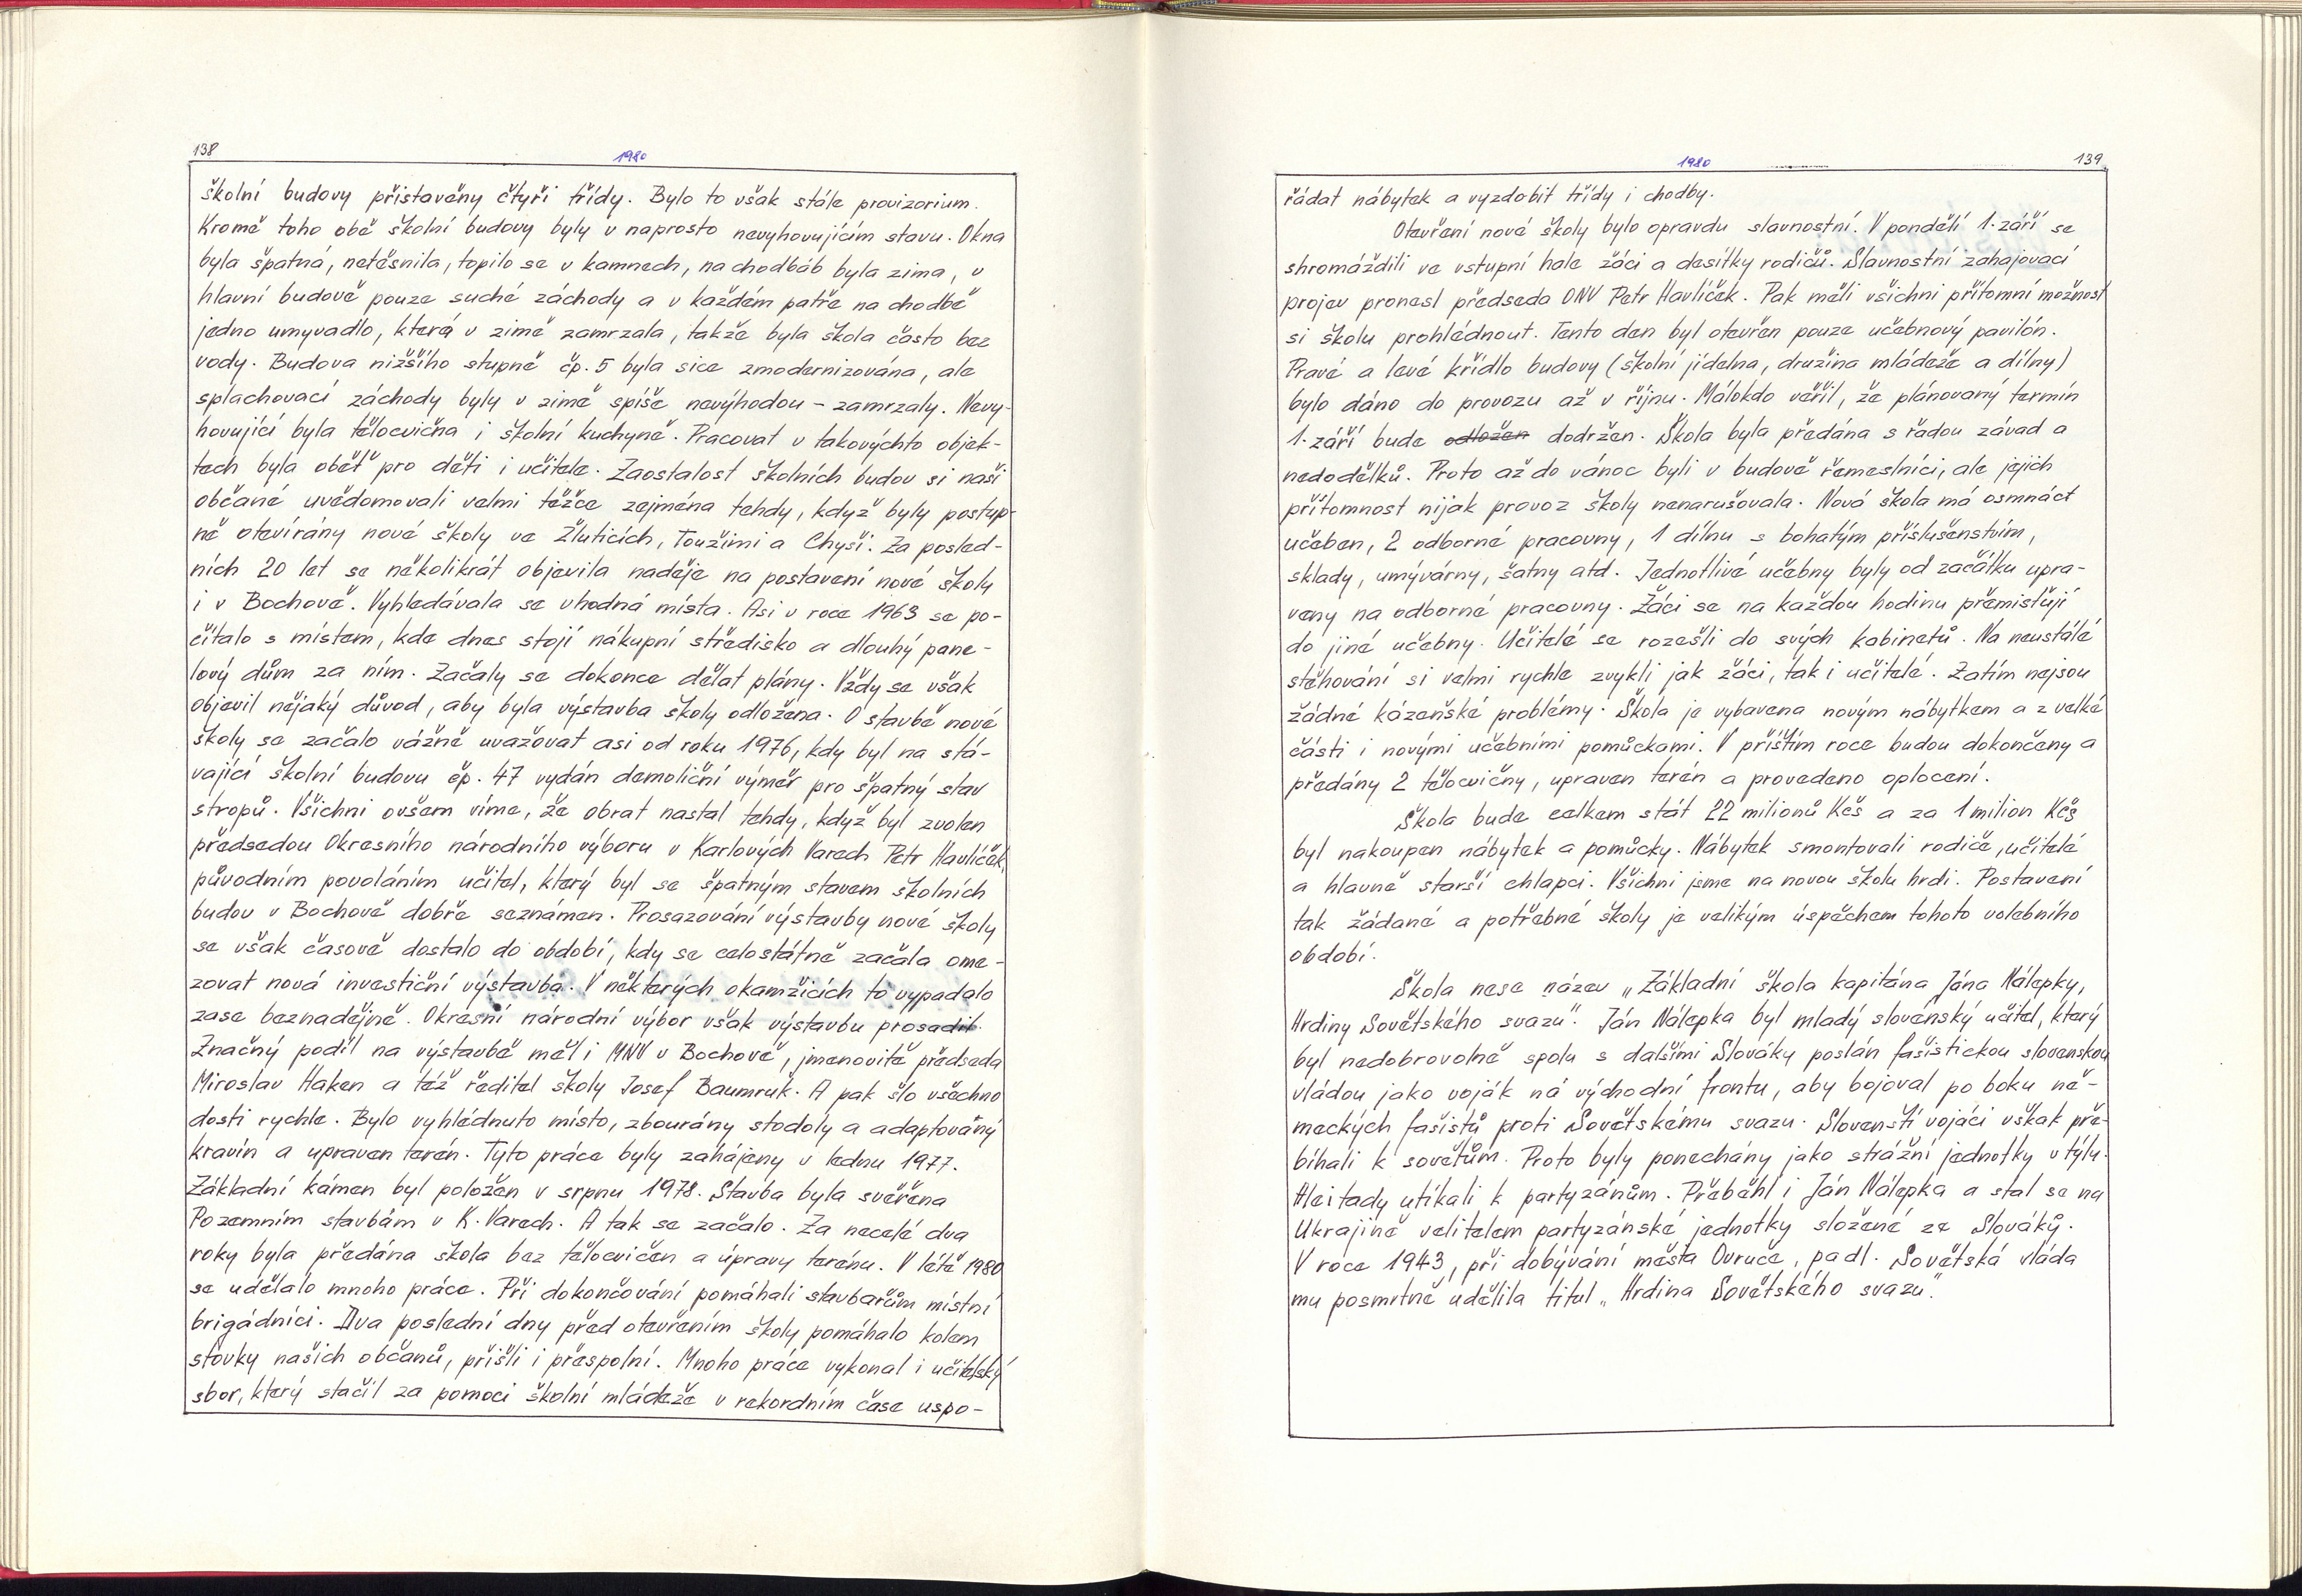 138
1980
školní budovy přistavěny čtyři třídy. Bylo to však stále provizorium.
Kromě toho obě školní budovy byly v naprosto nevyhovujícím stavu. Okna
byla špatná, netěsnila, topilo se v kamnech, na chodbáb byla zima, v
hlavní budově pouze suché záchody a v každém patře na chodbě
jedno umyvadlo, která v zimě zamrzala, takže byla škola často bez
vody. Budova nižšího stupně čp. 5 byla sice zmodernizována, ale
splachovací záchody byly v zimě spíše nevýhodou – zamrzaly. Nevy-
hovující byla tělocvična i školní kuchyně. Pracovat v takovýchto objek-
tech byla oběť pro děti i učitele. Zaostalost školních budov si naši
občané uvědomovali velmi těžce zejména tehdy, když byly postup-
ně otevírány nové školy ve Žluticích, Toužimi a Chyši. Za posled-
ních 20 let se několikrát objevila naděje na postavení nové školy
i v Bochově. Vyhledávala se vhodná místa. Asi v roce 1963 se po-
čítalo s místem, kde dnes stojí nákupní středisko a dlouhý pane-
lový dům za ním. Začaly se dokonce dělat plány. Vždy se však
objevil nějaký důvod, aby byla výstavba školy odložena. O stavbě nové
školy se začalo vážně uvažovat asi od roku 1976, kdy byl na stá-
vající školní budovu čp. 47 vydán demoliční výměr pro špatný stav
stropů. Všichni ovšem víme, že obrat nastal tehdy, když byl zvolen
předsedou Okresního národního výboru v Karlových Varech Petr Havlíček,
původním povoláním učitel, který byl se špatným stavem školních
budov v Bochově dobře seznámen. Prosazování výstavby nové školy
se však časově dostalo do období, kdy se celostátně začala ome-
zovat nová investiční výstavba. V některých okamžicích to vypadalo
zase beznadějně. Okresní národní výbor však výstavbu prosadil.
Značný podíl na výstavbě měl i MNV v Bochově, jmenovitě předseda
Miroslav Haken a též ředitel školy Josef Baumruk. A pak šlo všechno
dosti rychle. Bylo vyhlédnuto místo, zbourány stodoly a adaptovaný
kravín a upraven terén. Tyto práce byly zahájeny v lednu 1977.
Základní kámen byl položen v srpnu 1978. Stavba byla svěřena
Pozemním stavbám v K. Varech. A tak se začalo. Za necelé dva
roky byla předána škola bez tělocvičen a úpravy terénu. V létě 1980
se udělalo mnoho práce. Při dokončování pomáhali stavbařům místní
brigádníci. Dva poslední dny před otevřením školy pomáhalo kolem
stovky našich občanů, přišli i přespolní. Mnoho práce vykonal i učitelský
sbor, který stačil za pomoci školní mládeže v rekordním čase uspo-
1980
139
řádat nábytek a vyzdobit třídy i chodby.
Otevření nové školy bylo opravdu slavnostní. V pondělí 1. září se
shromáždili ve vstupní hale žáci a desítky rodičů. Slavnostní zahajovací
projev pronesl předseda ONV Petr Havlíček. Pak měli všichni přítomní možnost
si školu prohlédnout. Tento den byl otevřen pouze učebnový pavilón.
Pravé a levé křídlo budovy (školní jídelna, družina mládeže a dílny)
bylo dáno do provozu až v říjnu. Málokdo věřil, že plánovaný termín
1. září bude odložen dodržen. Škola byla předána s řadou závad a
nedodělků. Proto až do vánoc byli v budově řemeslníci, ale jejich
přítomnost nijak provoz školy nenarušovala. Nová škola má osmnáct
učeben, 2 odborné pracovny, 1 dílnu s bohatým příslušenstvím,
sklady, umývárny, šatny atd. Jednotlivé učebny byly od začátku upra-
veny na odborné pracovny. Žáci se na každou hodinu přemisťují
do jiné učebny. Učitelé se rozešli do svých kabinetů. Na neustálé
stěhování si velmi rychle zvykli jak žáci, tak i učitelé. Zatím nejsou
žádné kázeňské problémy. Škola je vybavena novým nábytkem a z velké
části i novými učebními pomůckami. V příštím roce budou dokončeny a
předány 2 tělocvičny, upraven terén a provedeno oplocení.
Škola bude celkem stát 22 milionů Kčs a za 1 milion Kčs
byl nakoupen nábytek a pomůcky. Nábytek smontovali rodiče, učitelé
a hlavně starší chlapci. Všichni jsme na novou školu hrdi. Postavení
tak žádané a potřebné školy je velikým úspěchem tohoto volebního
období.
Škola nese název „Základní škola kapitána Jána Nálepky,
Hrdiny Sovětského svazu". Ján Nálepka byl mladý slovenský učitel, který
byl nedobrovolně spolu s dalšími Slováky poslán fašistickou slovenskou
vládou jako voják na východní frontu, aby bojoval po boku ně-
meckých fašistů proti Sovětskému svazu. Slovenští vojáci však pře-
bíhali k sovětům. Proto byly ponechány jako strážní jednotky v týlu.
Ale i tady utíkali k partyzánům. Přeběhl i Ján Nálepka a stal se na
Ukrajině velitelem partyzánské jednotky složené ze Slováků.
V roce 1943, při dobývání města Ovruče, padl. Sovětská vláda
mu posmrtně udělila titul „Hrdina Sovětského svazu".